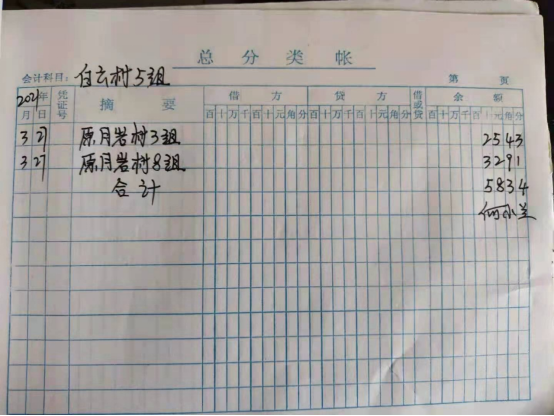 总分类帐
会计科目：白云村5组
第 页
2021年 凭证号 摘要 借方 贷方 借或贷 余额
月 日 百十万千百十元角分 百十万千百十元角分 百十万千百十元角分
3 27 原月岩村3组 2543
3 27 原月岩村8组 3291
合计 5834